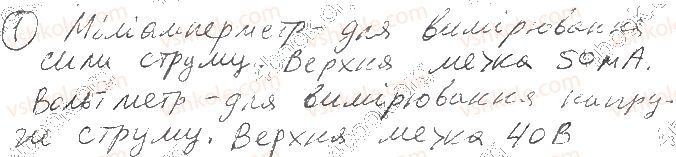 ① Міліамперметр - для вимірювання
сили струму. Верхня межа 50 мА.
Вольтметр - для вимірювання напру-
ги струму. Верхня межа 40В